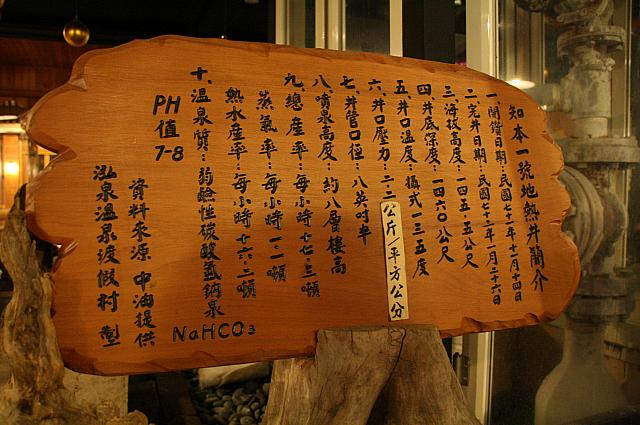 知本一號地熱井簡介
一、開鑽日期：民國七十一年十一月十四日
二、完井日期：民國七十二年一月二十六日
三、海拔高度：一四五·五公尺
四、井底深度：一四六〇公尺
五、井口溫度：攝式一三五度
六、井口壓力：二·二公斤/平方公分
七、井管口徑：八英吋半
八、噴泉高度：約八層樓高
九、總產率：每小時十七·三噸
蒸氣率：每小時一·一噸
熱水產率：每小時十六·二噸
十、溫泉質：弱鹼性碳酸氫鈉泉
NaHCO3
PH值7-8
資料來源 中油提供
泓泉溫泉渡假村 製